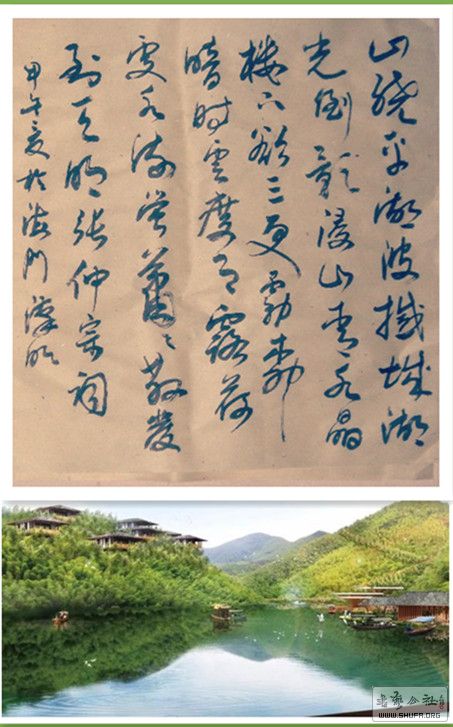 山绕平湖波撼城湖
光倒影浸山青水晶
楼下欲三更雾柳
暗时雲度月露荷
处水流萤萧々散发
到天明张仲宗词
甲午夏於海门
书艺公社
WWW.SHUFA.ORG